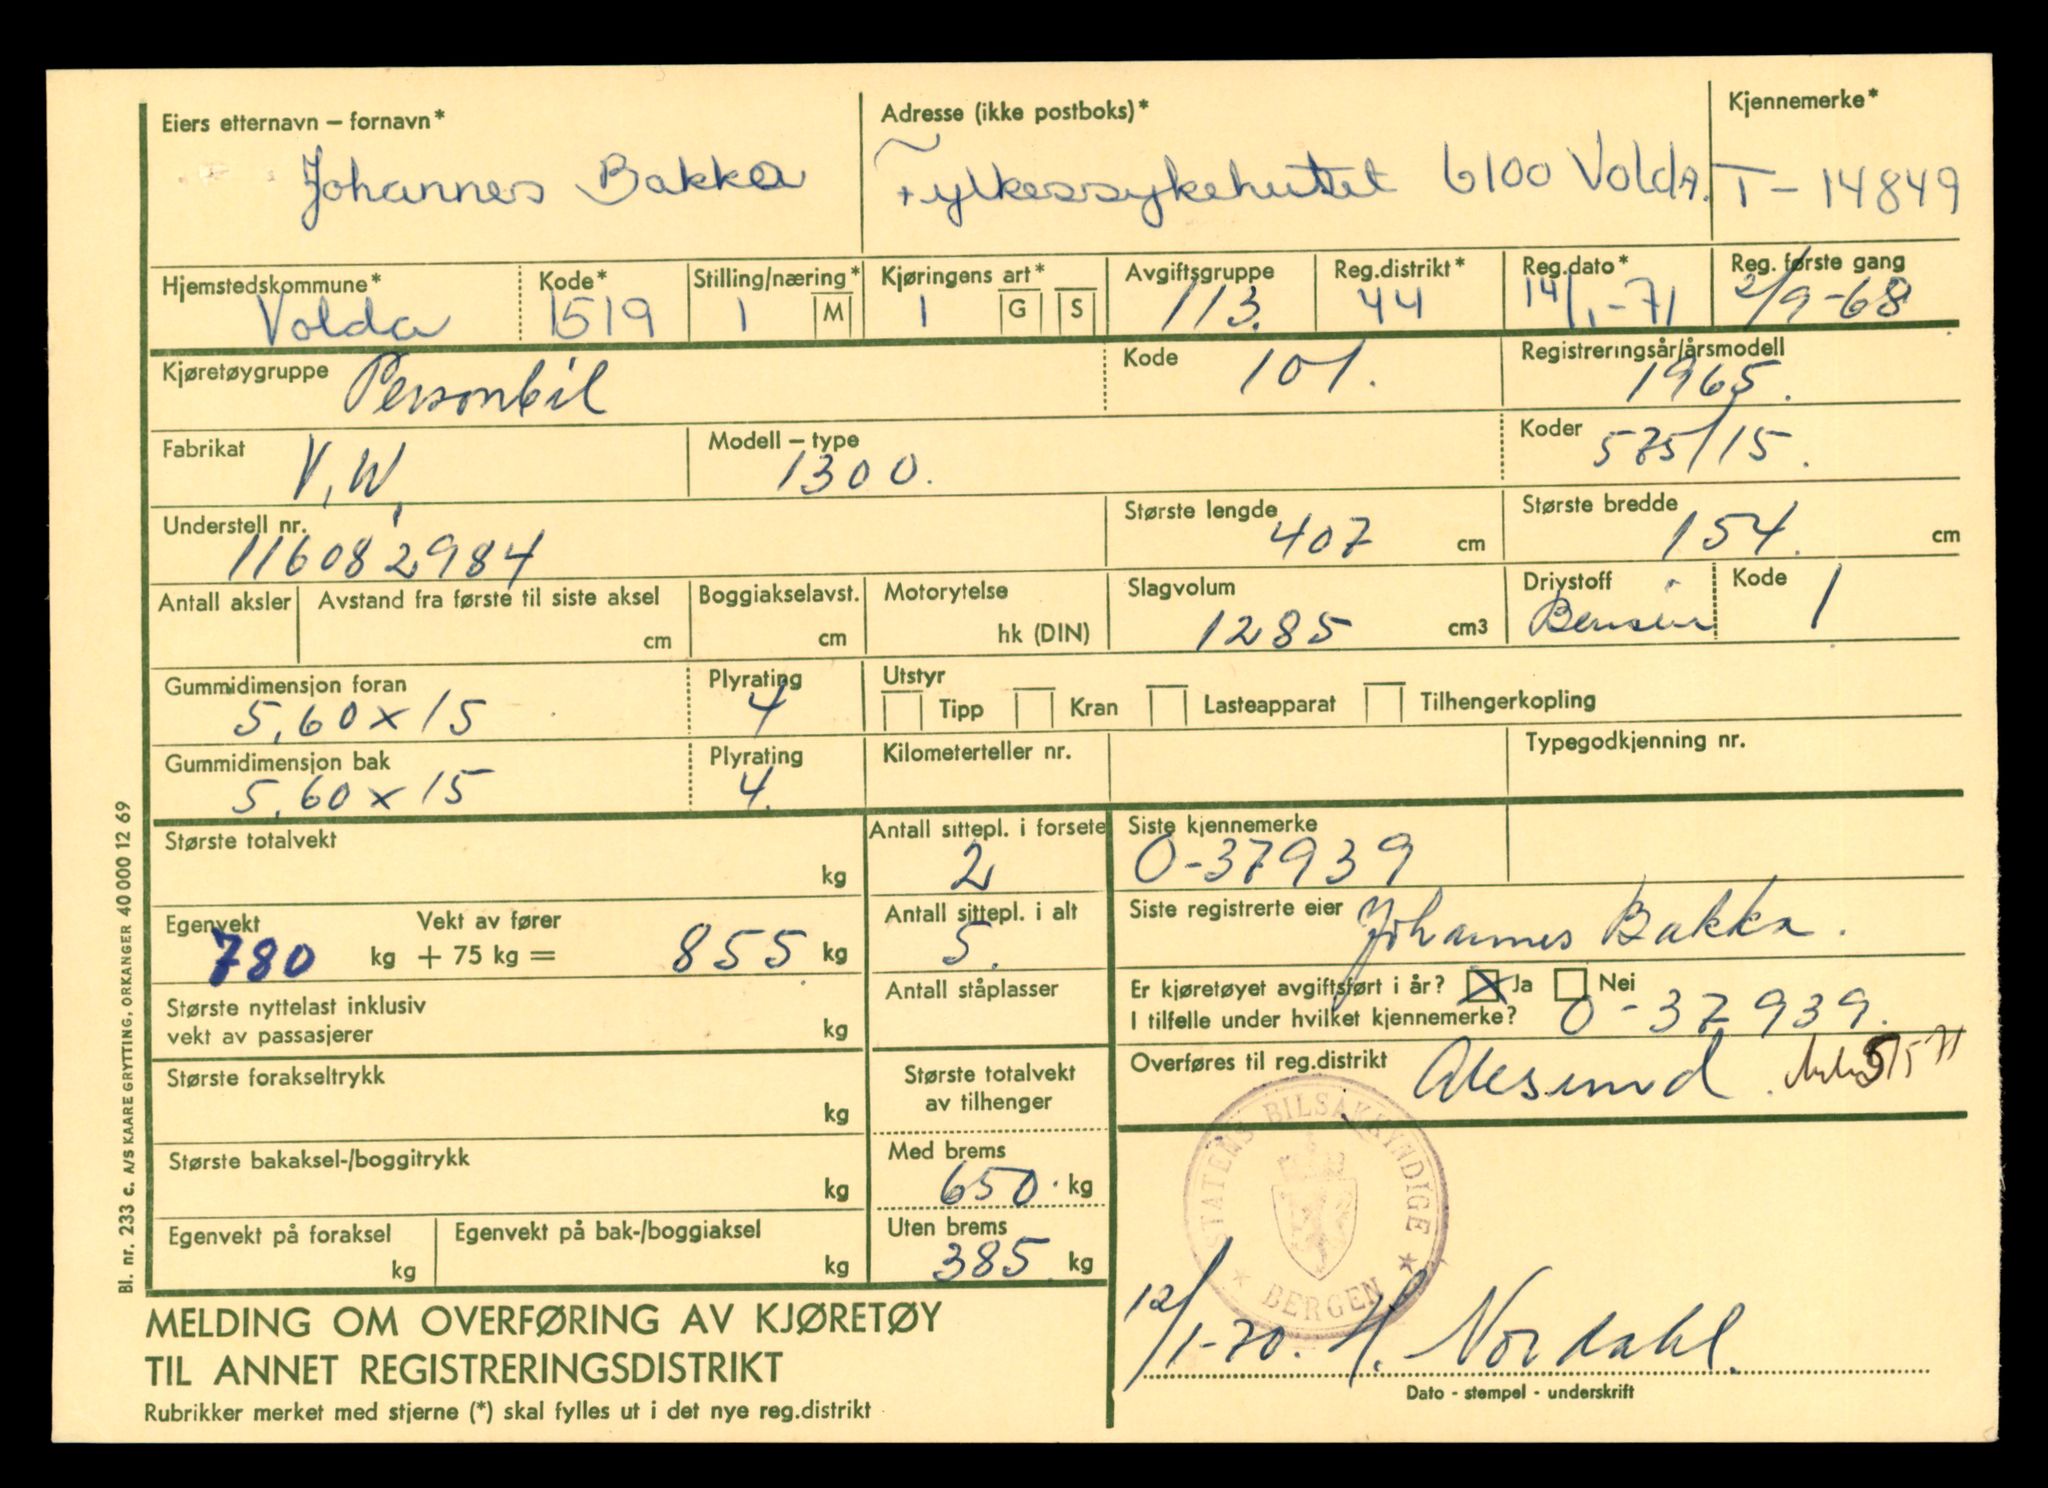 Eiers etternavn – fornavn*
Johannes Bakka
Adresse (ikke postboks)*
Fylkessykehuset 6100 Volda.
Kjennemerke*
T-14849
Hjemstedskommune*
Volda
Kode*
1519
Stilling/næring*
1 M
Kjøringens art*
1 G S
Avgiftsgruppe
113.
Reg.distrikt*
44
Reg.dato*
14/1-71
Reg. første gang
2/9-68
Kjøretøygruppe
Personbil
Kode
101.
Registreringsår/årsmodell
1965.
Fabrikat
V.W.
Modell – type
1300.
Koder
575/15.
Understell nr.
116082984
Største lengde
407 cm
Største bredde
154. cm
Antall aksler
Avstand fra første til siste aksel
cm
Boggiakselavst.
cm
Motorytelse
hk (DIN)
Slagvolum
1285 cm3
Drivstoff
Bensin
Kode
1
Gummidimensjon foran
5,60 x 15
Plyrating
4
Utstyr
Tipp Kran Lasteapparat Tilhengerkopling
Gummidimensjon bak
5,60 x 15
Plyrating
4.
Kilometerteller nr.
Typegodkjenning nr.
Største totalvekt
kg
Antall sittepl. i forsete
2
Siste kjennemerke
O-37939
Egenvekt Vekt av fører
780 kg + 75 kg = 855 kg
Antall sittepl. i alt
5.
Siste registrerte eier
Johannes Bakka.
Største nyttelast inklusiv
vekt av passasjerer
kg
Antall ståplasser
Er kjøretøyet avgiftsført i år? Ja Nei
I tilfelle under hvilket kjennemerke? O-37939.
Største forakseltrykk
kg
Største totalvekt
av tilhenger
Overføres til reg.distrikt
Ålesund.
Største bakaksel-/boggitrykk
kg
Med brems
650. kg
Egenvekt på foraksel
kg
Egenvekt på bak-/boggiaksel
kg
Uten brems
385. kg
STATENS BILSAKKYNDIGE
BERGEN
12/1-70. H. Nordahl.
Dato - stempel - underskrift
MELDING OM OVERFØRING AV KJØRETØY
TIL ANNET REGISTRERINGSDISTRIKT
Rubrikker merket med stjerne (*) skal fylles ut i det nye reg.distrikt
Bl. nr. 233 c. A/S KAARE GRYTTING, ORKANGER 40 000 12 69